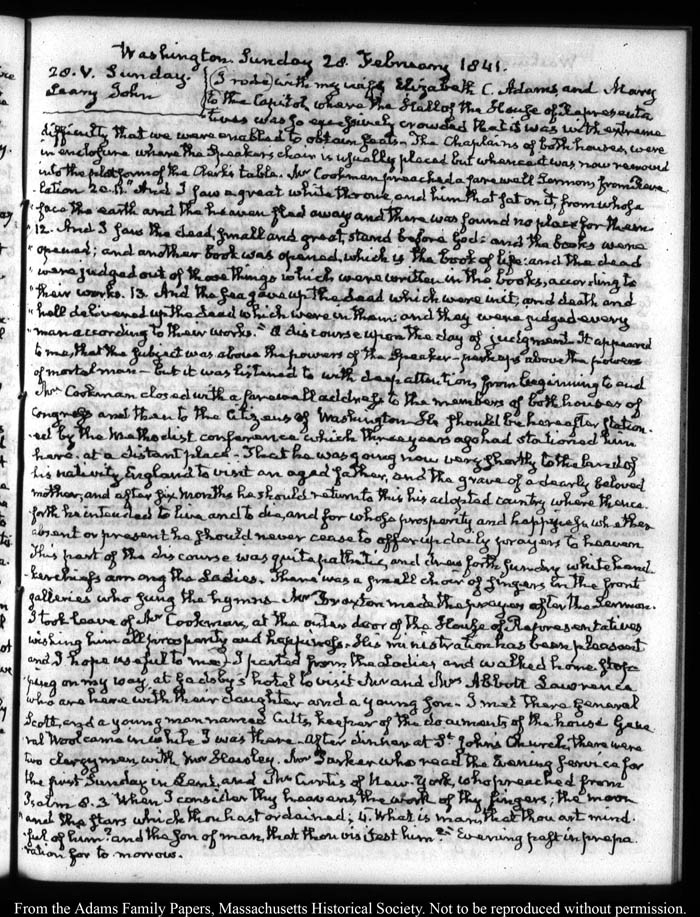 Washington. Sunday 28. February 1841.
28. V. Sunday.
Leary John
I rode with my wife Elizabeth C. Adams, and Mary
to the Capitol, where the Hall of the House of Representa
tives was so excessively crowded that it was with extreme
difficulty that we were enabled to obtain seats. The Chaplains of both houses, were
in enclosure where the Speakers chair is usually placed but whence it was now removed
into the platform of the Clerks table. Mr Cookman preached a farewell Sermon from Reve
lation 20. 11. "And I saw a great white throne, and him that sat on it, from whose
"face the earth and the heaven fled away, and there was found no place for them
"12. And I saw the dead, small and great, stand before God: and the books were
"opened; and another book was opened, which is the book of life: and the dead
"were judged out of those things which were written in the books, according to
"their works. 13. And the sea gave up the dead which were in it; and death and
"hell delivered up the dead which were in them: and they were judged every
"man according to their works." A discourse upon the day of judgment. It appeared
to me, that the subject was above the powers of the Speaker – perhaps above the powers
of mortal man – but it was listened to with deep attention, from beginning to end
Mr Cookman closed with a farewell address to the members of both houses of
Congress and then to the Citizens of Washington. He should be hereafter station-
ed by the Methodist conference which three years ago had stationed him
here, at a distant place – That he was going now very shortly to the land of
his nativity, England to visit an aged father, and the grave of a dearly beloved
mother, and after six months he should return to this his adopted country where thence
forth he intended to live, and to die, and for whose prosperity, and happiness whether
absent or present he should never cease to offer up daily prayers to heaven.
This part of the discourse was quite pathetic, and drew forth sundry white hand
kerchiefs among the Ladies. There was a small choir of singers in the front
galleries who sung the hymns. Mr Braxton made the prayer after the Sermon.
I took leave of Mr Cookman, at the outer door of the House of Representatives
wishing him all prosperity and happiness. His ministration has been pleasant
and I hope useful to me. I parted from the Ladies and walked home, stop
ping on my way, at Gadsby's hotel to visit Mr and Mrs Abbott Lawrence
who are here with their daughter and a young Son. I met there General
Scott, and a young man named Cutts, keeper of the documents of the house. Gene
ral Wool came in while I was there. After dinner at St. John's Church, there were
two clergymen, with Mr Hawley. Mr Parker who read the Evening service for
the first Sunday in Lent, and Mr Curtis of New-York, who preached from
Psalm 8. 3 When I consider thy heavens, the work of thy fingers; the moon
"and the stars which thou hast ordained; 4. What is man, that thou art mind
"ful of him? and the son of man, that thou visitest him?" Evening past in prepa
ration for to morrow.
From the Adams Family Papers, Massachusetts Historical Society. Not to be reproduced without permission.